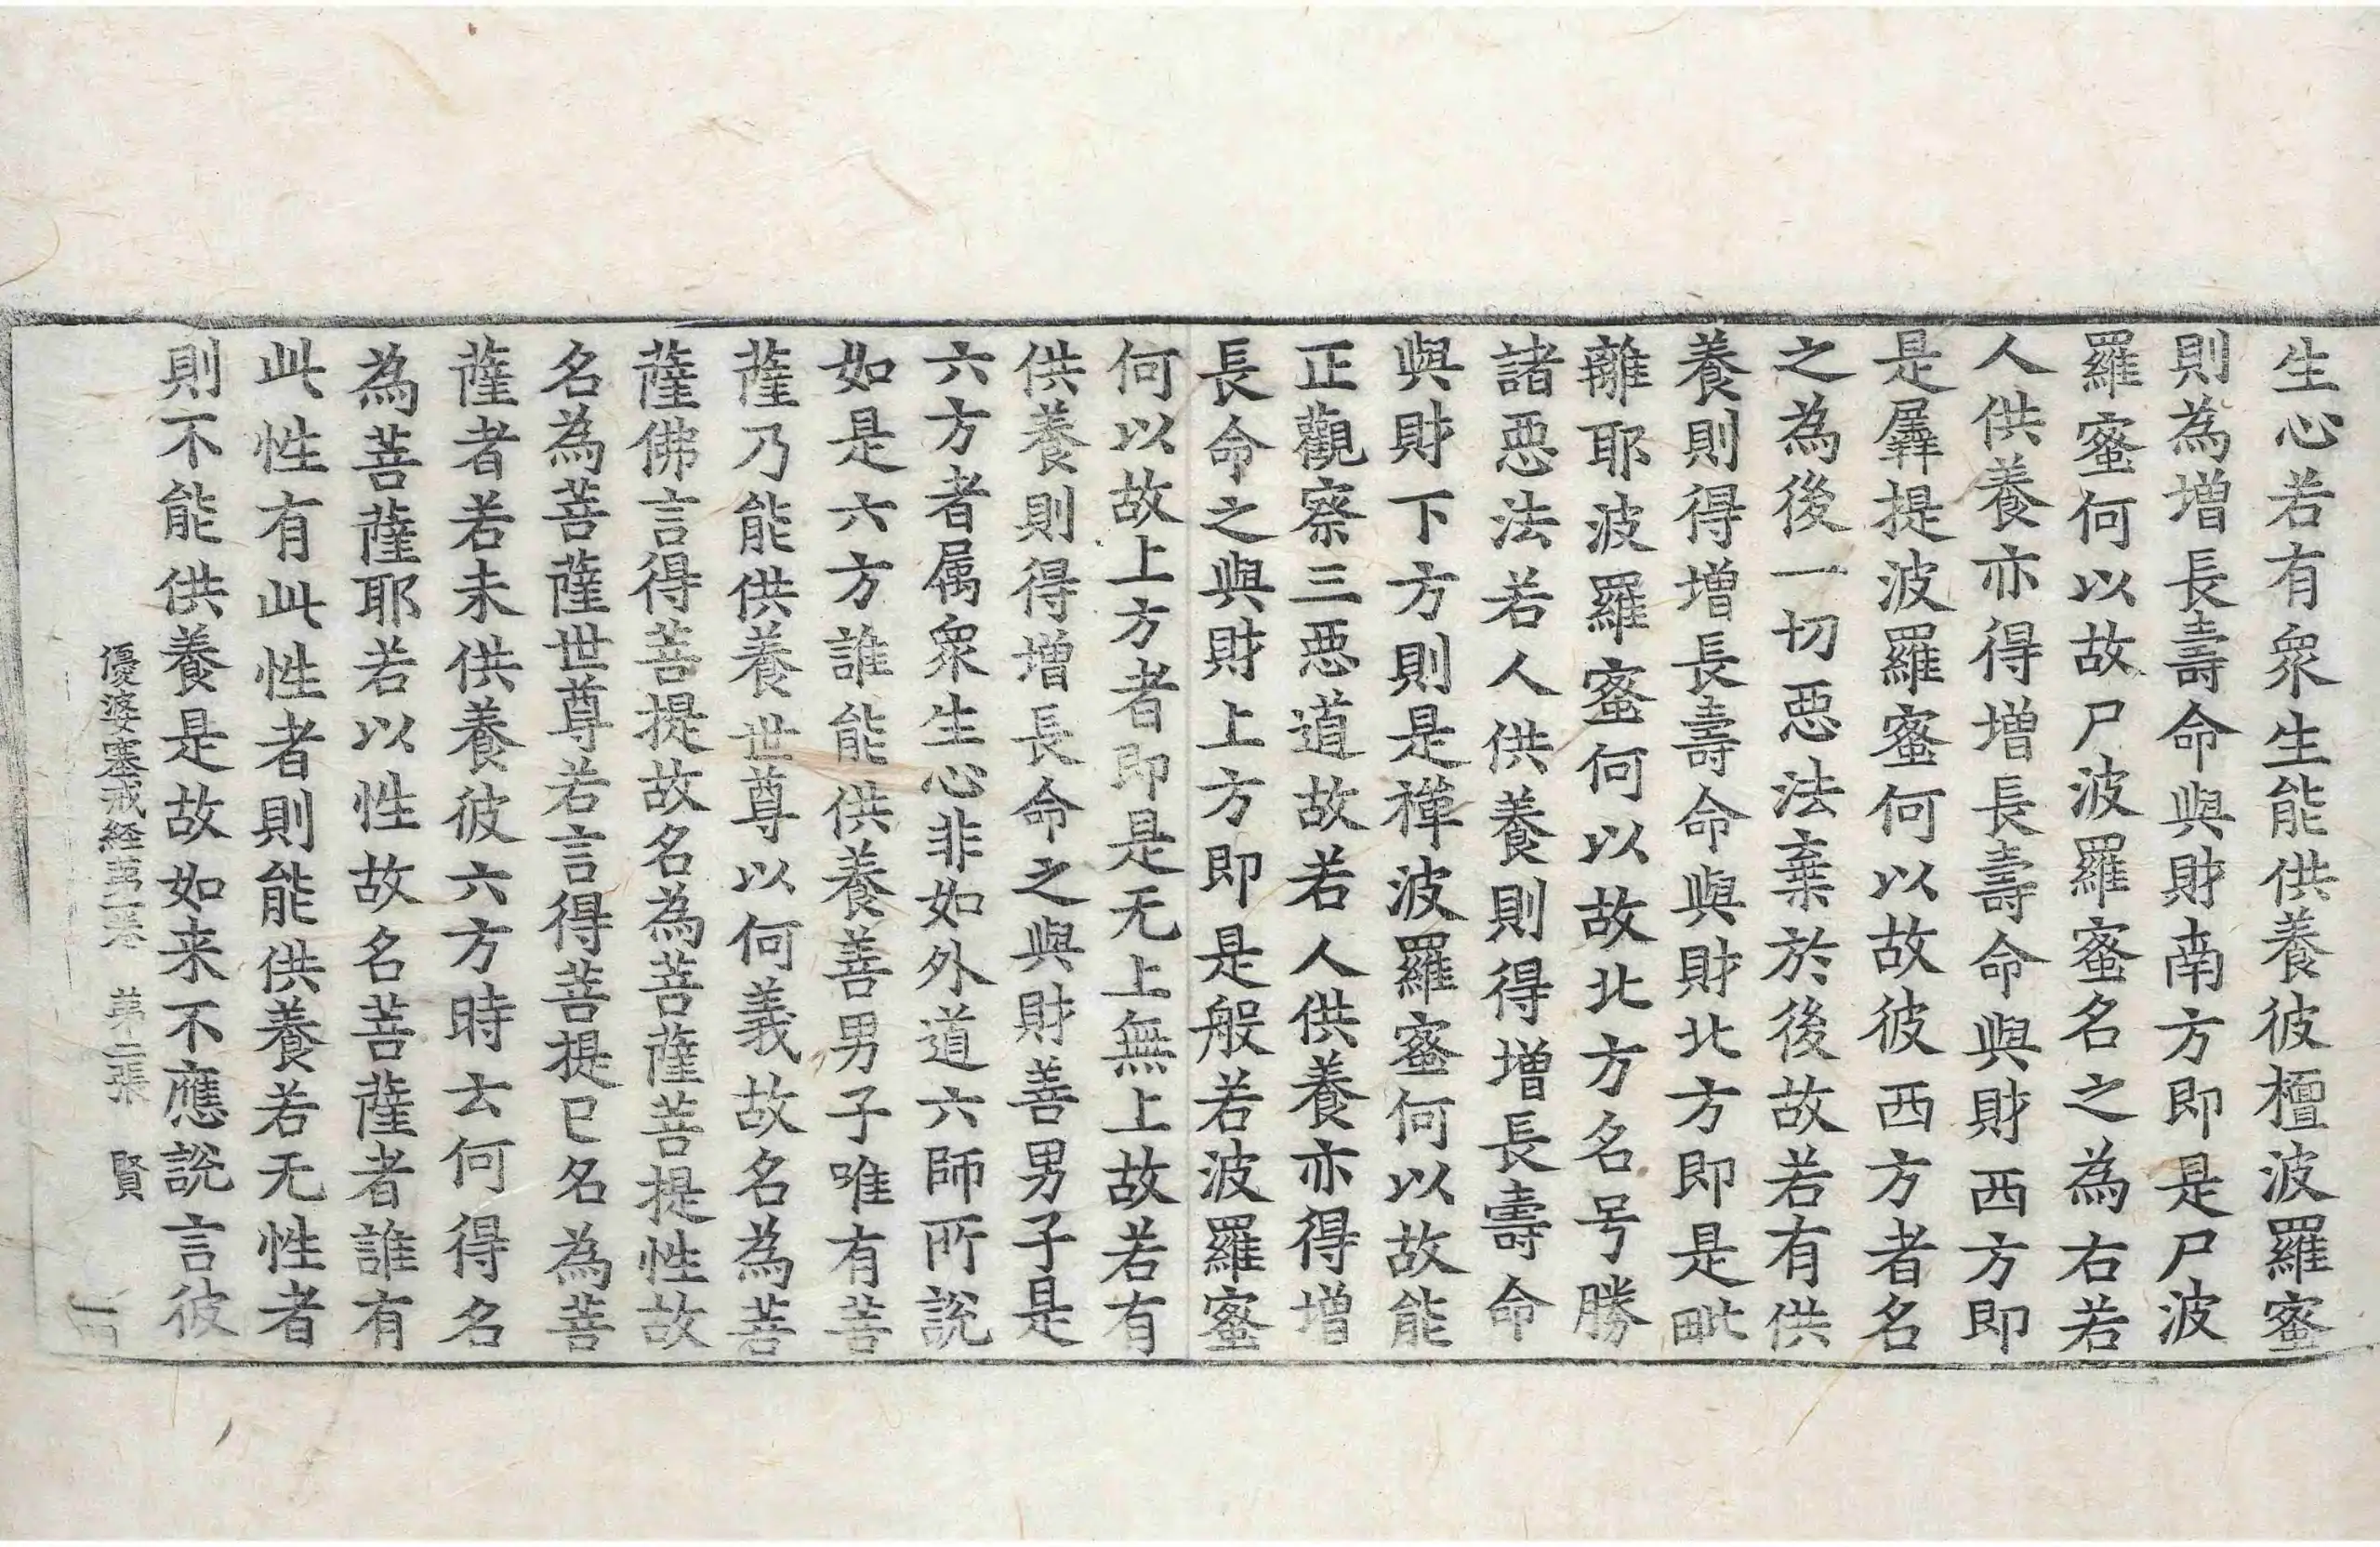 生心若有衆生能供養彼檀波羅蜜
則為增長壽命與財南方即是尸波
羅蜜何以故尸波羅蜜名之為右若
人供養亦得增長壽命與財西方即
是羼提波羅蜜何以故彼西方者名
之為後一切惡法棄於後故若有供
養則得增長壽命與財北方即是毗
離耶波羅蜜何以故北方名号勝
諸惡法若人供養則得增長壽命
與財下方則是禪波羅蜜何以故能
正觀察三惡道故若人供養亦得增
長命之與財上方即是般若波羅蜜
何以故上方者即是无上無上故若有
供養則得增長命之與財善男子是
六方者属衆生心非如外道六師所說
如是六方誰能供養善男子唯有菩
薩乃能供養世尊以何義故名為菩
薩佛言得菩提故名為菩薩菩提性故
名為菩薩世尊若言得菩提已名為菩
薩者若未供養彼六方時云何得名
為菩薩耶若以性故名菩薩者誰有
此性有此性者則能供養若无性者
則不能供養是故如来不應說言彼
優婆塞戒経苐一卷　苐二張　賢